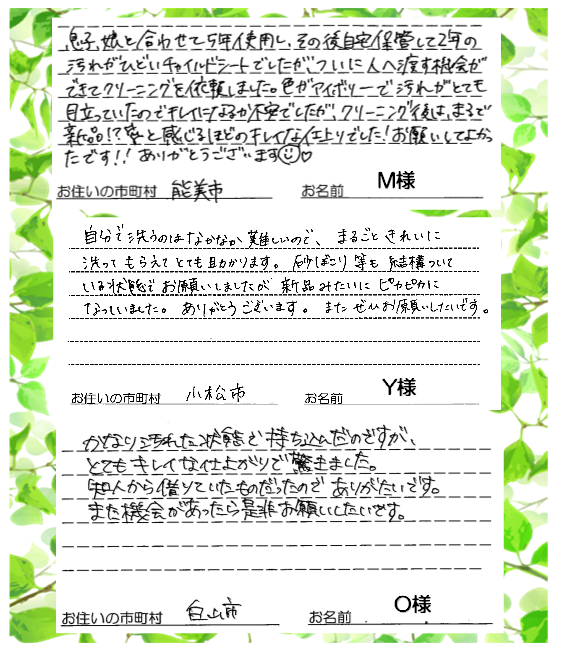 息子、娘と合わせて5年使用し、その後自宅保管して2年の
汚れがひどいチャイルドシートでしたが、ついに人へ渡す機会が
できてクリーニングを依頼しました。色がアイボリーで汚れがとても
目立っていたのでキレイになるか不安でしたが、クリーニング後は、まるで
新品!?と感じるほどのキレイな仕上りでした!お願いしてよかっ
たです!!ありがとうございます☺♡
お住いの市町村 能美市 お名前 M様
自分で洗うのはなかなか難しいので、まるごときれいに
洗ってもらえてとても助かります。砂ぼこり等も結構ついて
いる状態でお願いしましたが新品みたいにピカピカに
なっていました。ありがとうございます。またぜひお願いしたいです。
お住いの市町村 小松市 お名前 Y様
かなり汚れた状態で持ち込んだのですが、
とてもキレイな仕上がりで驚きました。
知人から借りていたものだったのでありがたいです。
また機会があったら是非お願いしたいです。
お住いの市町村 白山市 お名前 O様